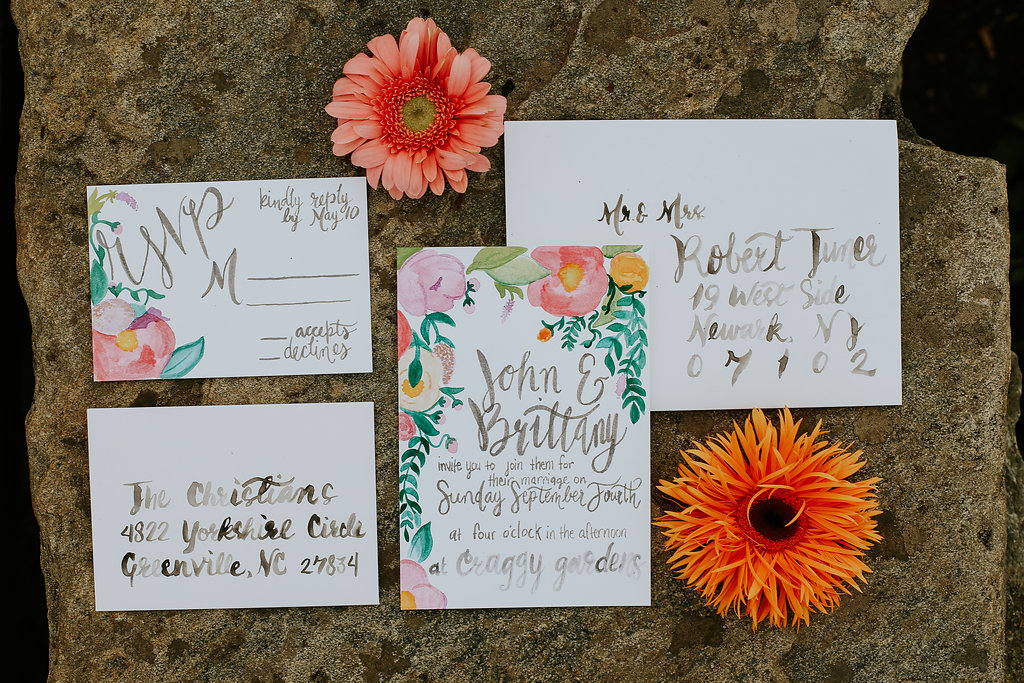 RSVP
kindly reply
by May 10
M
accepts
declines
Mr & Mrs.
Robert Turner
19 West Side
Newark, NJ
07102
The Christians
4822 Yorkshire Circle
Greenville, NC 27834
John &
Brittany
invite you to join them for
their marriage on
Sunday September Fourth
at four o'clock in the afternoon
at Craggy gardens